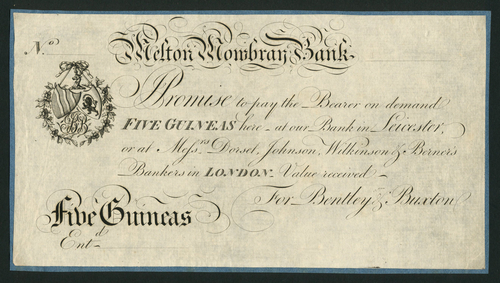 N.o
Melton Mowbray Bank.
I Promise to pay the Bearer on demand
FIVE GUINEAS here - at our Bank in Leicester,
or at Messrs Dorset, Johnson, Wilkinson & Berners
Bankers in LONDON. Value received -
For Bentley & Buxton
Five Guineas
Entd